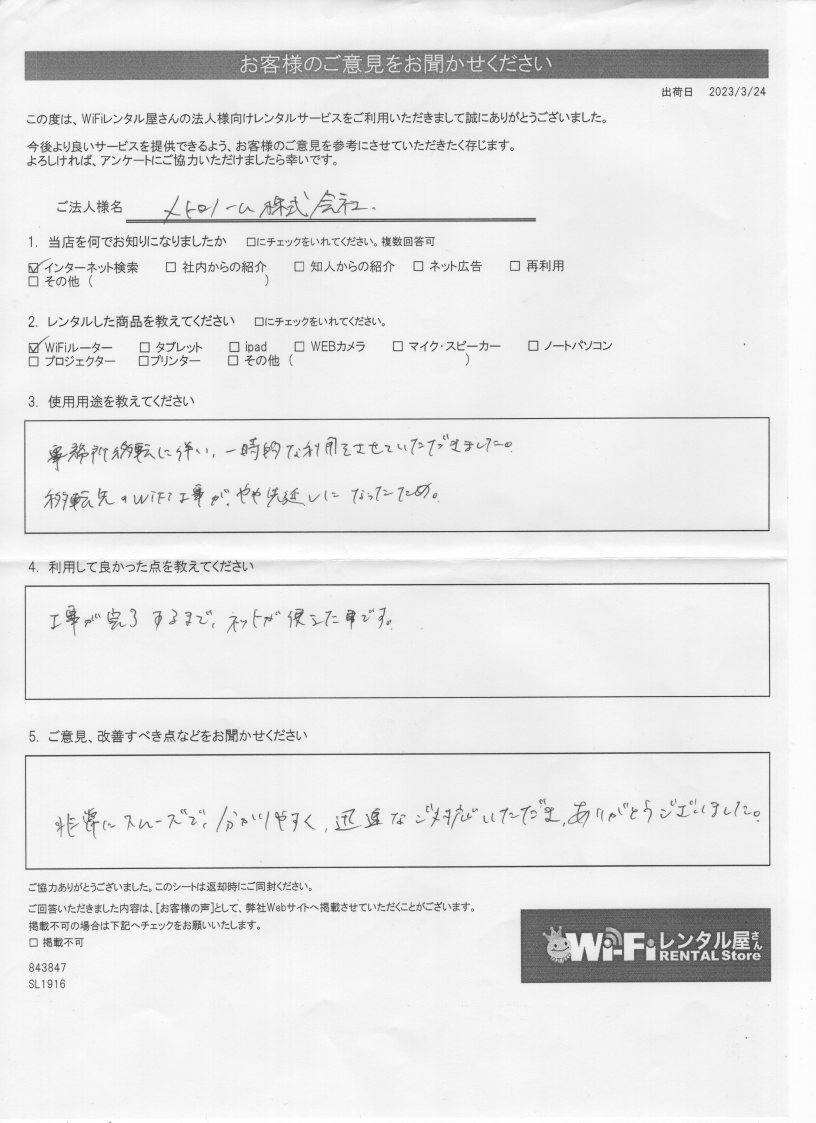 お客様のご意見をお聞かせください
出荷日 2023/3/24
この度は、WiFiレンタル屋さんの法人様向けレンタルサービスをご利用いただきまして誠にありがとうございました。
今後より良いサービスを提供できるよう、お客様のご意見を参考にさせていただきたく存じます。
よろしければ、アンケートにご協力いただけましたら幸いです。
ご法人様名 メトロノーム株式会社.
1. 当店を何でお知りになりましたか □にチェックをいれてください。複数回答可
☑インターネット検索 □ 社内からの紹介 □ 知人からの紹介 □ ネット広告 □ 再利用
□ その他 ( )
2. レンタルした商品を教えてください □にチェックをいれてください。
☑ WiFiルーター □ タブレット □ ipad □ WEBカメラ □ マイク・スピーカー □ ノートパソコン
□ プロジェクター □プリンター □ その他 ( )
3. 使用用途を教えてください
事務所移転に伴い、一時的な利用をさせていただきました。
移転先のWiFi工事が、やや先延しになったため。
4. 利用して良かった点を教えてください
工事が完了するまで、ネットが使えた事です。
5. ご意見、改善すべき点などをお聞かせください
非常にスムーズで、分かりやすく、迅速なご対応いただき、ありがとうございました。
ご協力ありがとうございました。このシートは返却時にご同封ください。
ご回答いただきました内容は、[お客様の声]として、弊社Webサイトへ掲載させていただくことがございます。
掲載不可の場合は下記へチェックをお願いいたします。
□ 掲載不可
Wi-Fiレンタル屋さん
RENTAL Store
843847
SL1916